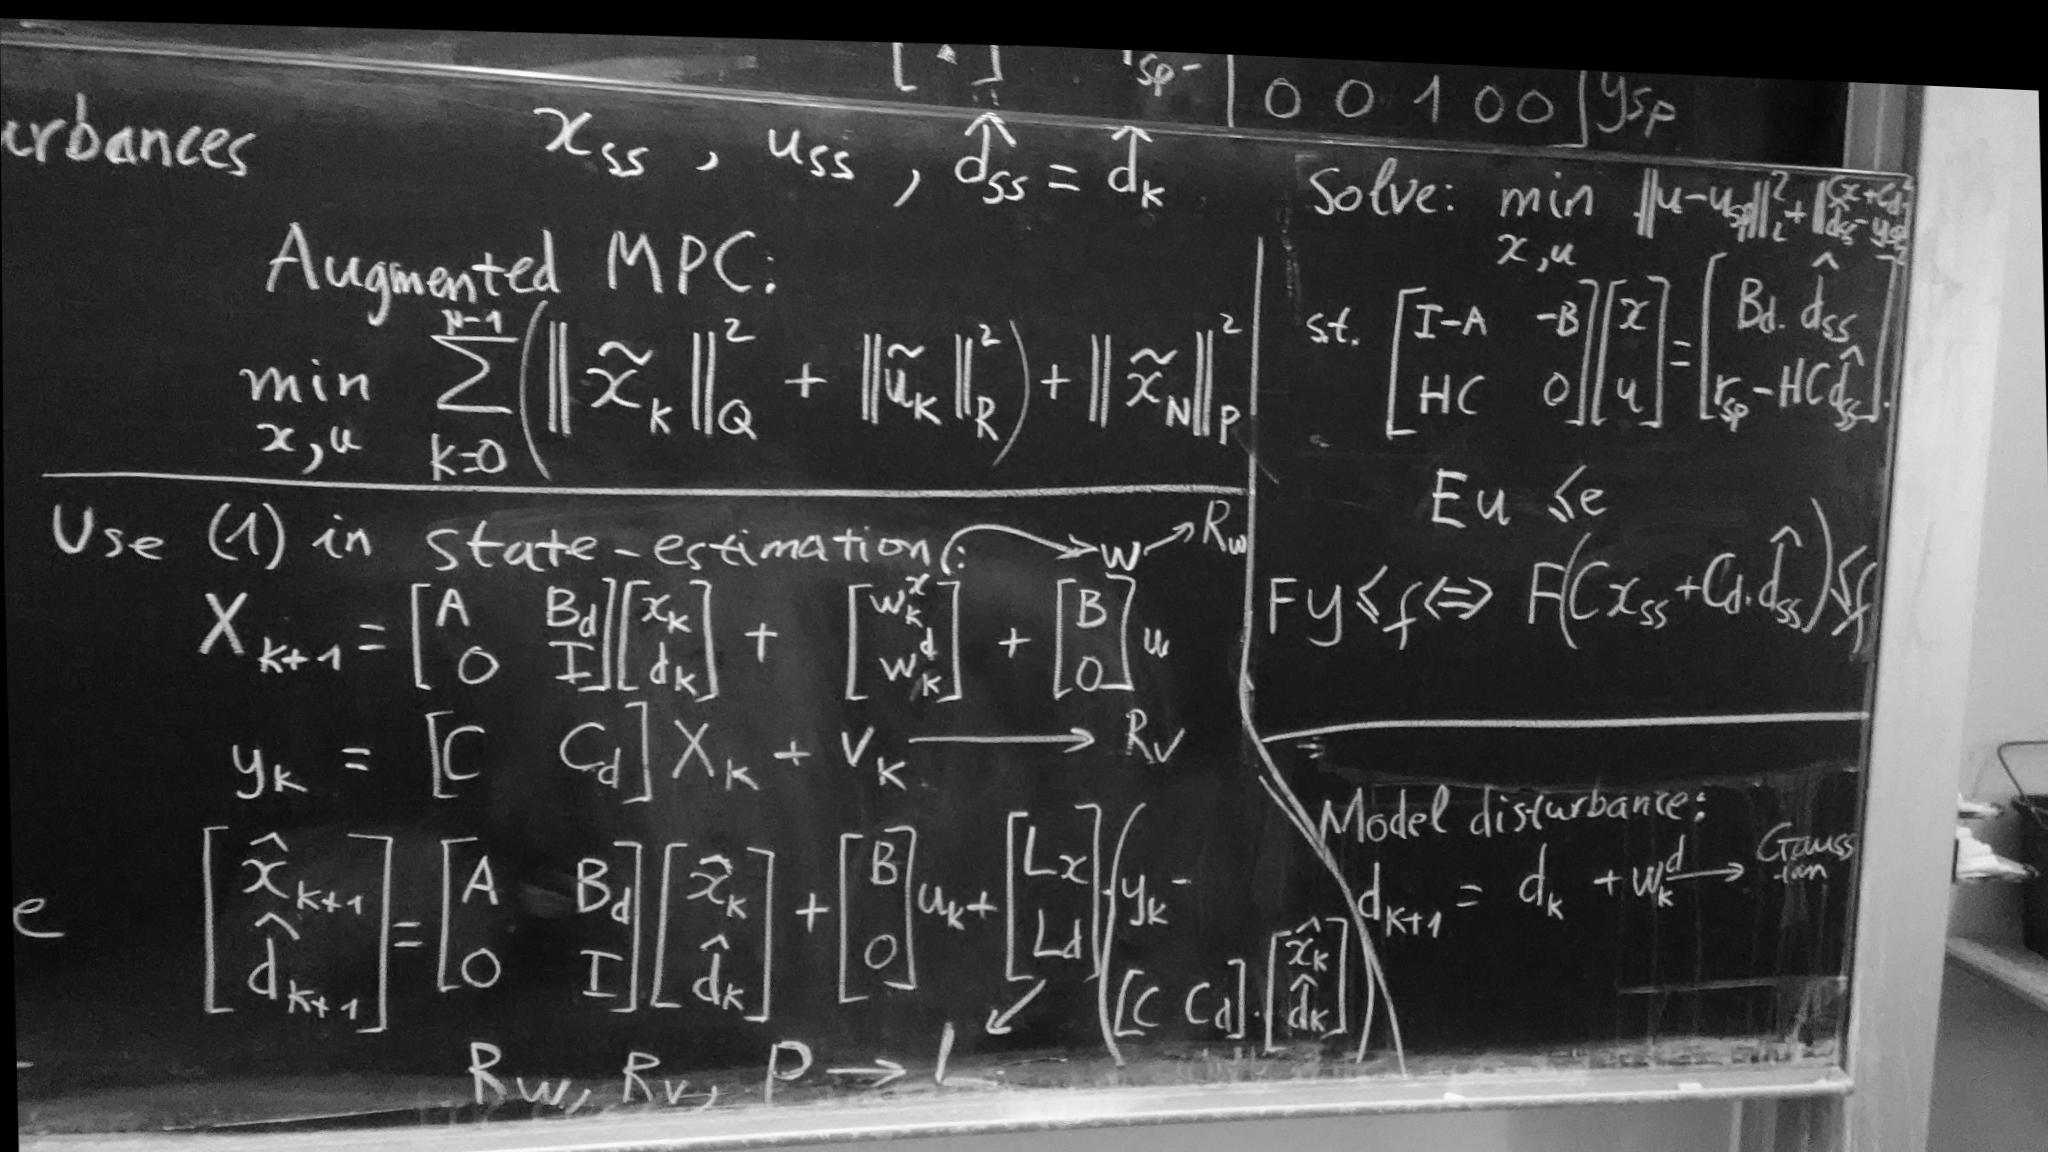 [ · ] r_sp - [ 0 0 1 0 0 ] y_sp
urbances
x_ss , u_ss , d̂_ss = d̂_k
Augmented MPC:
min_{x,u} Σ_{k=0}^{N-1} ( ‖x̃_k‖²_Q + ‖ũ_k‖²_R ) + ‖x̃_N‖²_P
Use (1) in state-estimation: → w → R_w
X_{k+1} = [A B_d; 0 I] [x_k; d_k] + [w_k^x; w_k^d] + [B; 0] u
y_k = [C C_d] X_k + v_k → R_v
e
[x̂_{k+1}; d̂_{k+1}] = [A B_d; 0 I] [x̂_k; d̂_k] + [B; 0] u_k + [L_x; L_d] · ( y_k -
[C C_d] · [x̂_k; d̂_k] )
R_w, R_v, P → L
Solve: min_{x,u} ‖u-u_sp‖²_2 + ‖Cx+C_d d̂_ss - y_sp‖²_2
s.t. [I-A -B; HC 0] [x; u] = [B_d · d̂_ss; r_sp - HC d̂_ss].
Eu ≤ e
Fy ≤ f ⇔ F(Cx_ss + C_d · d̂_ss) ≤ f
Model disturbance:
d_{k+1} = d_k + w_k^d → Gauss
ian